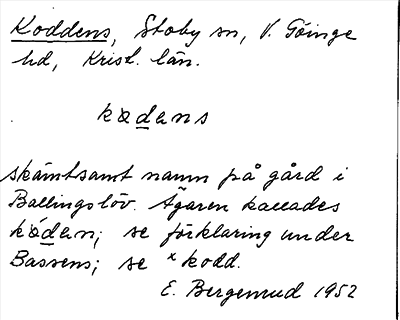 Koddens, Stoby sn, V. Göinge
hd, Krist. län.
kødans
skämtsamt namn på gård i
Ballingslöv. Ägaren kallades
kødan; se förklaring under
Bassens; se x kodd.
E. Bergenrud 1952